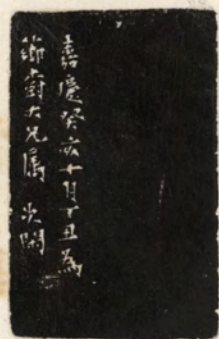 嘉慶癸亥十月丁丑為
大兄属 次閑